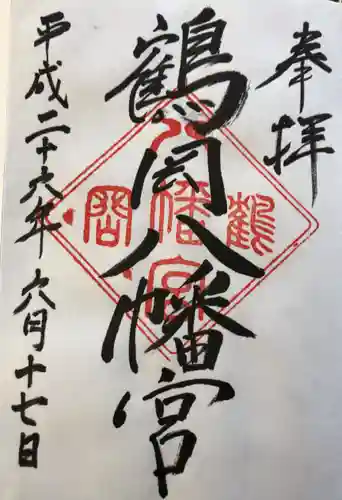 奉拝
鶴岡八幡宮
鶴岡
八幡宮
平成二十六年六月十七日